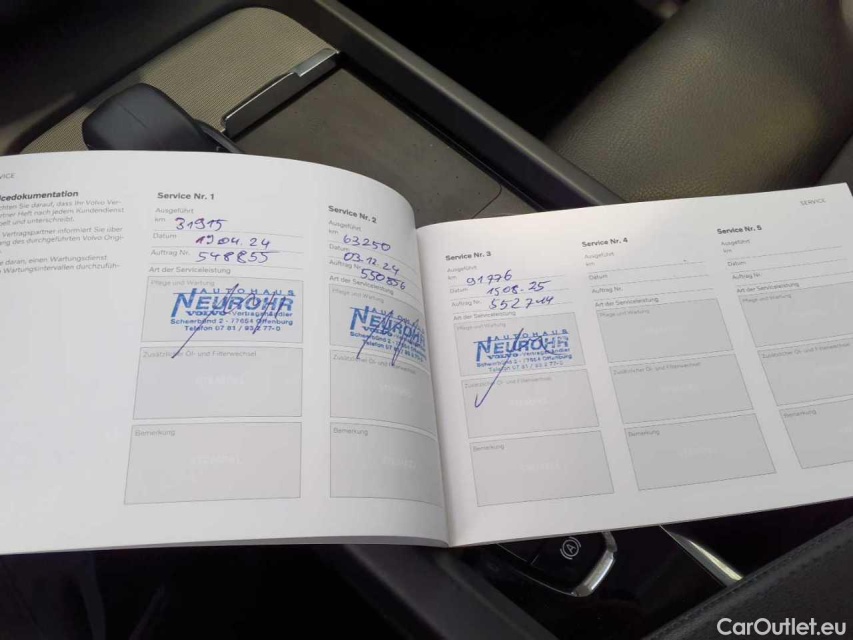 VICE
cedokumentation
chten Sie darauf, dass Ihr Volvo Ver-
rtner Heft nach jedem Kundendienst
pelt und unterschreibt.
Vertragspartner informiert Sie über
ng des durchgeführten Volvo Origi-
e daran, einen Wartungsdienst
Wartungsintervallen durchzufüh-
Service Nr. 1
Ausgeführt
km 31915
Datum 19.04.24
Auftrag Nr. 548855
Art der Serviceleistung
Pflege und Wartung
AUTOHAUS
NEUROHR
VOLVO-Vertragshändler
Scheerbünd 2 - 77654 Offenburg
Telefon 07 81 / 93 2 77-0
Zusätzlicher Öl- und Filterwechsel
Bemerkung
Service Nr. 2
Ausgeführt
km 63250
Datum 03.12.24
Auftrag Nr. 550856
Art der Serviceleistung
Pflege und Wartung
NEUROHR
Zusätzlicher Öl- und Filterwechsel
Bemerkung
SERVICE
Service Nr. 3
Ausgeführt
km 91776
Datum 15.08.25
Auftrag Nr. 552714
Art der Serviceleistung
Pflege und Wartung
AUTOHAUS
NEUROHR
VOLVO-Vertragshändler
Scheerbünd 2 - 77654 Offenburg
Telefon 07 81 / 93 2 77-0
Zusätzlicher Öl- und Filterwechsel
Bemerkung
Service Nr. 4
Ausgeführt
km
Datum
Auftrag Nr.
Art der Serviceleistung
Pflege und Wartung
Zusätzlicher Öl- und Filterwechsel
Bemerkung
Service Nr. 5
Ausgeführt
km
Datum
Auftrag Nr.
Art der Serviceleistung
Pflege und Wartung
Zusätzlicher Öl- und
Bemerkung
CarOutlet.eu